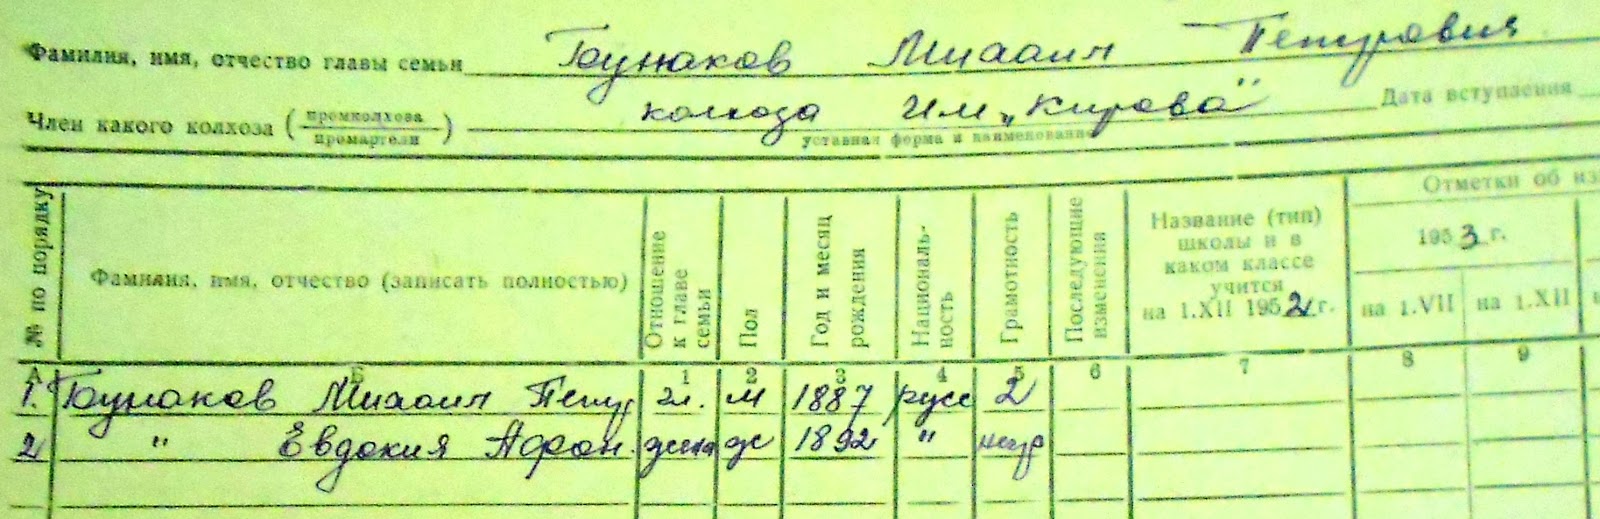 Фамилия, имя, отчество главы семьи Бунаков Михаил Петрович
Член какого колхоза (промколхоза / промартели) колхоза им „Кирова" Дата вступления
уставная форма и наименование
№ по порядку
Фамилия, имя, отчество (записать полностью)
Отношение к главе семьи
Пол
Год и месяц рождения
Националь-ность
Грамотность
Последующие изменения
Название (тип) школы и в каком классе учится на 1.XII 1952 г.
Отметки об из
1953 г.
на 1.VII на 1.XII
А Б 1 2 3 4 5 6 7 8 9
1. Бунаков Михаил Петр гл. м 1887 русс 2
2 " Евдокия Афан. жена ж 1892 " негр